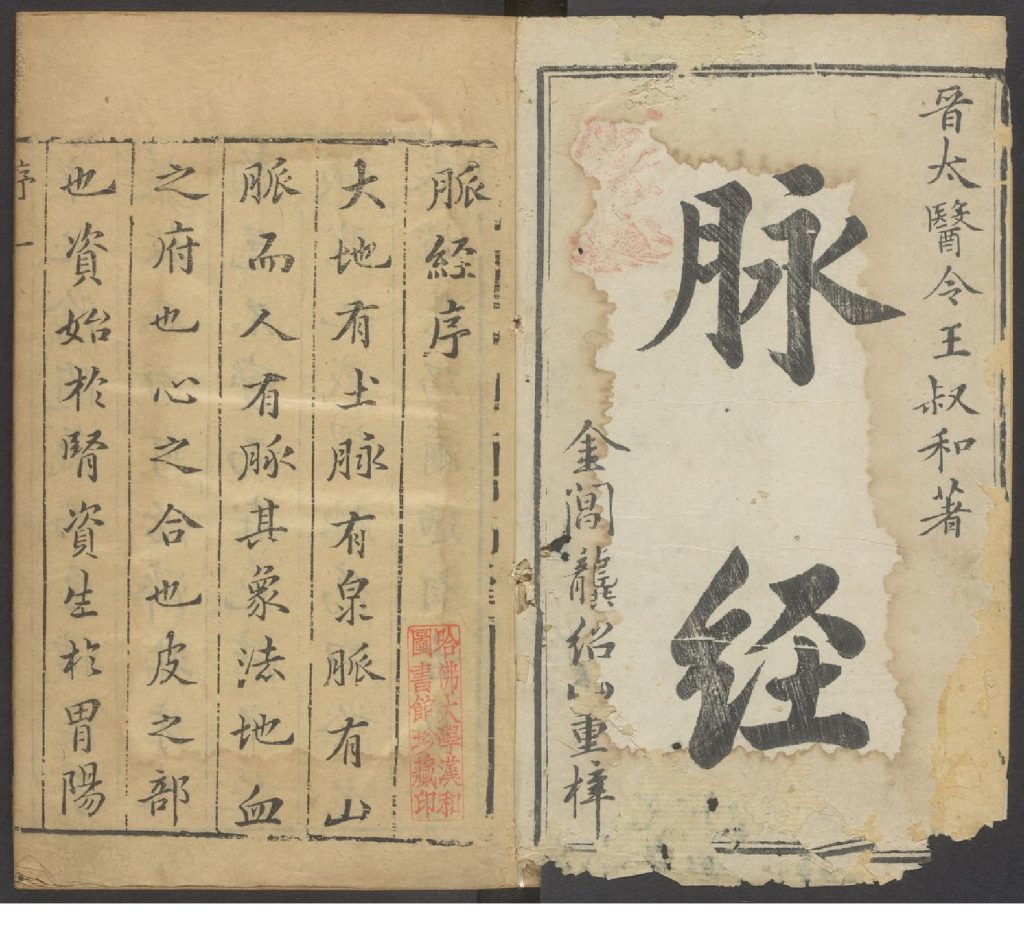 晋太醫令王叔和著
脉经
金閶龔绍山重梓
脈经序
大地有土脉有泉脈有山
脈而人有脉其象法地血
之府也心之合也皮之部
也資始於腎資生於胃陽
序 一
哈佛大學漢和
圖書館珍藏印